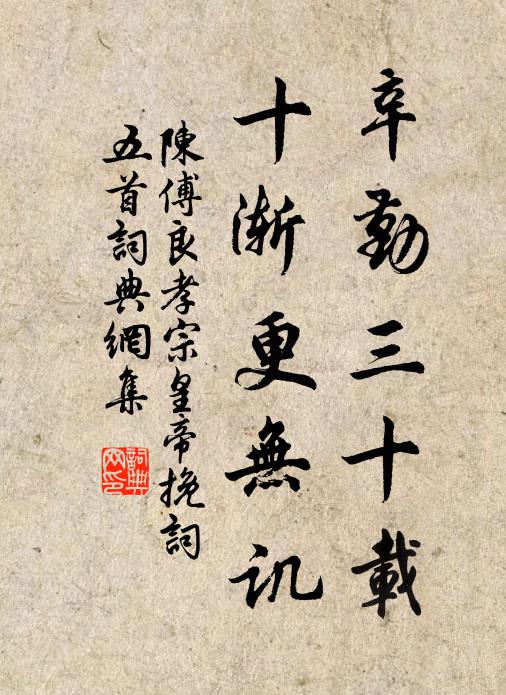 辛勤三十載
十漸更無訊
陳傅良孝宗皇帝挽詞
五首詞典網集
詞典網印